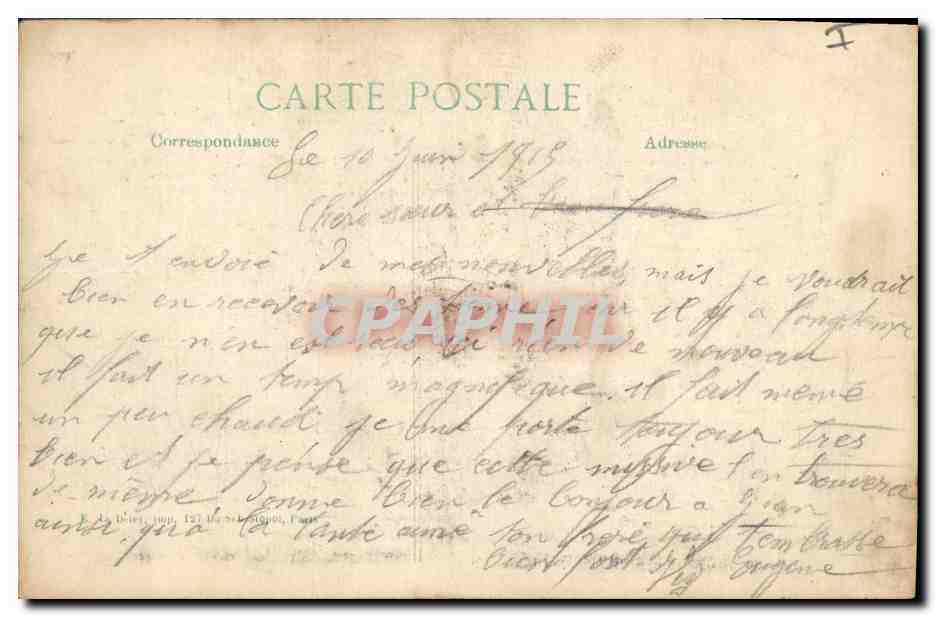 I
CARTE POSTALE
Correspondance
Adresse
Le 10 Juin 1915
Chere sœur et
Je t envoie de mes nouvelles, mais je voudrait
bien en recevoir des car il y a longtemps
que je n'en est ici rien de nouveau
il fait un temp magnifique. il fait meme
un peu chaud je me porte toujour tres
bien et je pense que cette missive t en trouvera
de même donne bien le bonjour a Jean
E. Le Deley, imp. 127 Bd Sébastopol, Paris
ainsi qu'a la tante aimé ton frère qui t'embrasse
bien fort Eugene
CPAPHIL